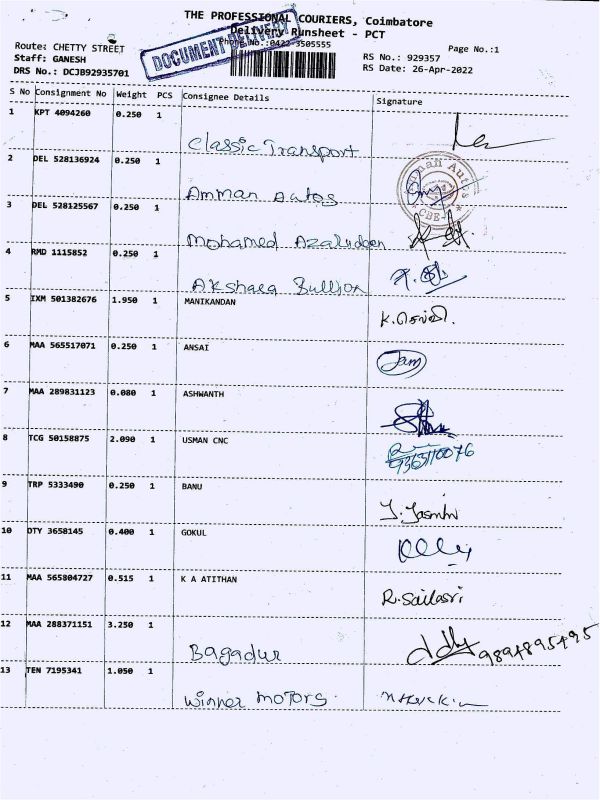 THE PROFESSIONAL COURIERS, Coimbatore
Delivery Runsheet - PCT
DOCUMENT DELIVERY
Phone No.:0422-3505555
Page No.:1
Route: CHETTY STREET
Staff: GANESH
DRS No.: DCJB92935701
RS No.: 929357
RS Date: 26-Apr-2022
S No Consignment No Weight PCS Consignee Details Signature
1 KPT 4094260 0.250 1
Classic Transport
2 DEL 528136924 0.250 1
Amman Autos
CBE
3 DEL 528125567 0.250 1
Mohamed Azaludeen
4 RMD 1115852 0.250 1
Akshara Bullion
5 IXM 501382676 1.950 1 MANIKANDAN
6 MAA 565517071 0.250 1 ANSAI
Jam
7 MAA 289831123 0.080 1 ASHWANTH
8 TCG 50158875 2.090 1 USMAN CNC
9363110076
9 TRP 5333490 0.250 1 BANU
J. Jasmin
10 DTY 3658145 0.400 1 GOKUL
11 MAA 565804727 0.515 1 K A ATITHAN
R. Sailasri
12 MAA 288371151 3.250 1
Bagadur
9894895495
13 TEN 7195341 1.050 1
Winner Motors